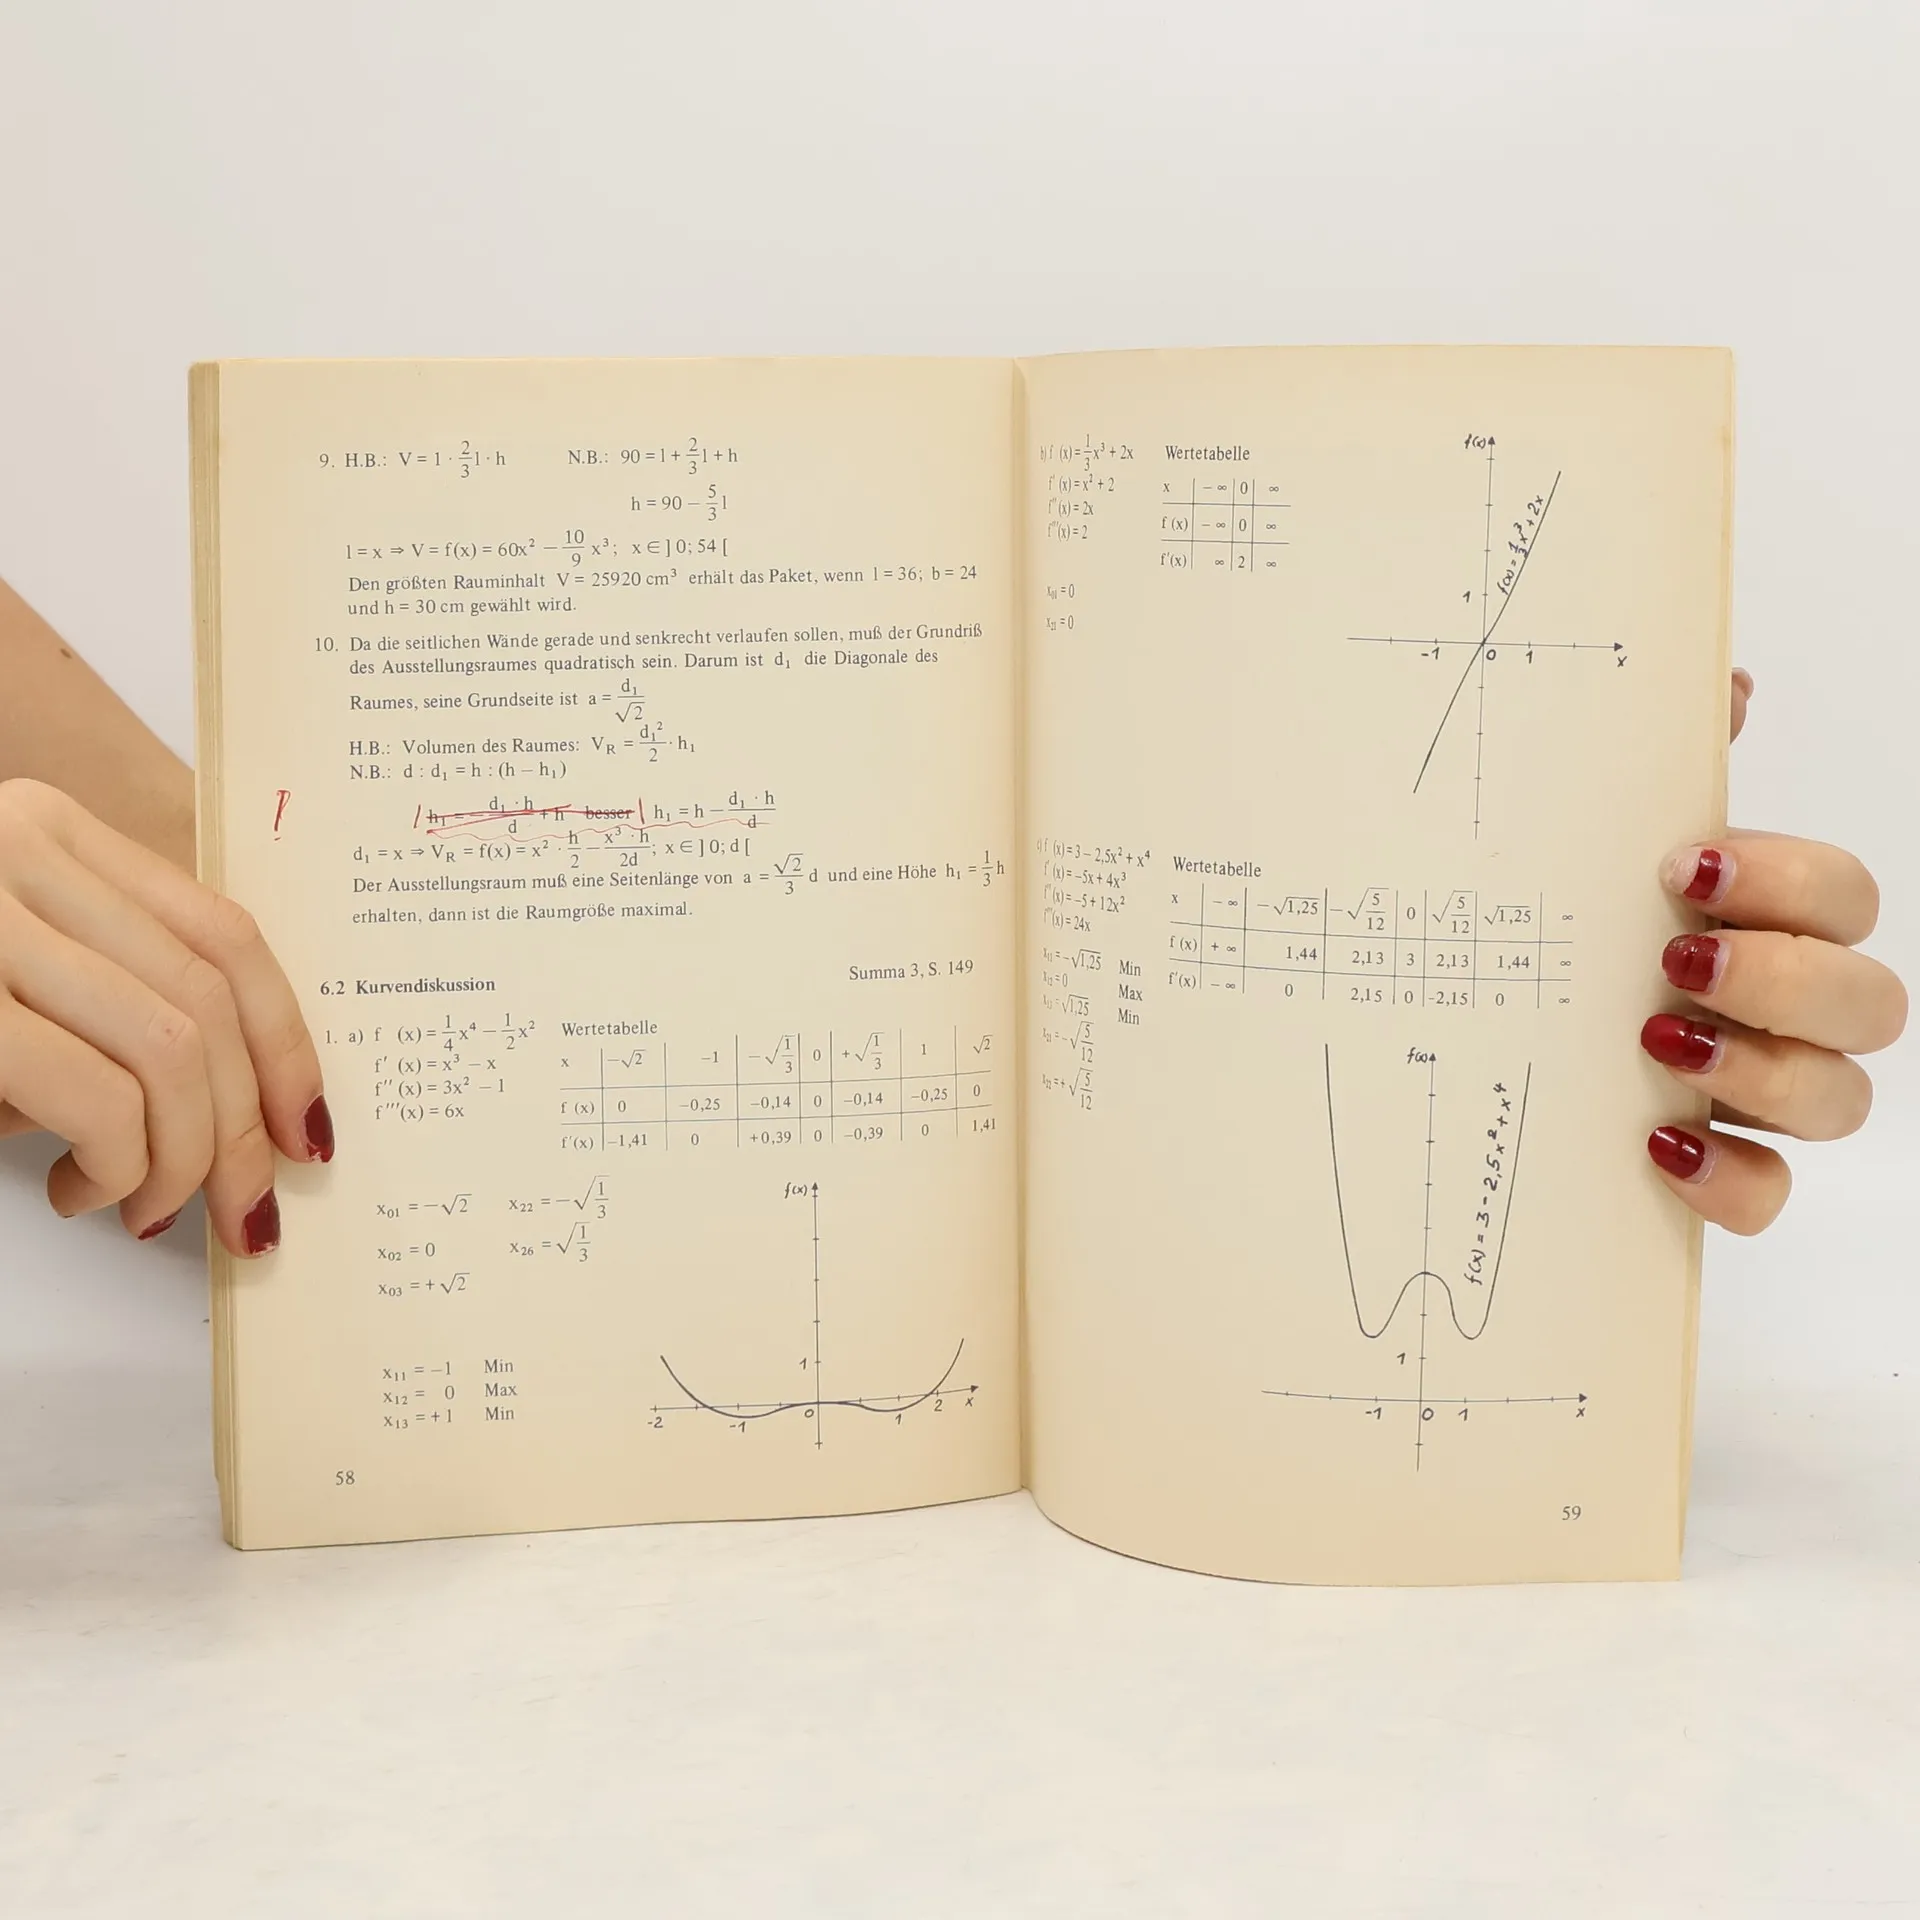 9. H.B.: V = l · 2/3 l · h   N.B.: 90 = l + 2/3 l + h
h = 90 − 5/3 l
l = x ⇒ V = f(x) = 60x² − 10/9 x³; x ∈ ] 0; 54 [
Den größten Rauminhalt V = 25920 cm³ erhält das Paket, wenn l = 36; b = 24
und h = 30 cm gewählt wird.
10. Da die seitlichen Wände gerade und senkrecht verlaufen sollen, muß der Grundriß
des Ausstellungsraumes quadratisch sein. Darum ist d₁ die Diagonale des
Raumes, seine Grundseite ist a = d₁/√2
H.B.: Volumen des Raumes: V_R = d₁²/2 · h₁
N.B.: d : d₁ = h : (h − h₁)
h₁ = − d₁ · h/d + h besser h₁ = h − d₁ · h/d
d₁ = x ⇒ V_R = f(x) = x² · h/2 − x³ · h/2d; x ∈ ] 0; d [
Der Ausstellungsraum muß eine Seitenlänge von a = √2/3 d und eine Höhe h₁ = 1/3 h
erhalten, dann ist die Raumgröße maximal.
6.2 Kurvendiskussion   Summa 3, S. 149
1. a) f (x) = 1/4 x⁴ − 1/2 x²   Wertetabelle
f' (x) = x³ − x
f'' (x) = 3x² − 1
f'''(x) = 6x
x −√2 −1 −√1/3 0 +√1/3 1 √2
f (x) 0 −0,25 −0,14 0 −0,14 −0,25 0
f'(x) −1,41 0 +0,39 0 −0,39 0 1,41
x₀₁ = −√2   x₂₂ = −√1/3
x₀₂ = 0   x₂₆ = √1/3
x₀₃ = +√2
x₁₁ = −1 Min
x₁₂ = 0 Max
x₁₃ = +1 Min
f(x)
1
-2 -1 0 1 2 x
58
b) f (x) = 1/3 x³ + 2x   Wertetabelle
f' (x) = x² + 2
f'' (x) = 2x
f'''(x) = 2
x −∞ 0 ∞
f (x) −∞ 0 ∞
f'(x) ∞ 2 ∞
x₀₁ = 0
x₂₁ = 0
f(x)
f(x) = 1/3 x³ + 2x
1
-1 0 1 x
c) f (x) = 3 − 2,5x² + x⁴   Wertetabelle
f' (x) = −5x + 4x³
f'' (x) = −5 + 12x²
f'''(x) = 24x
x −∞ −√1,25 −√5/12 0 √5/12 √1,25 ∞
f (x) +∞ 1,44 2,13 3 2,13 1,44 ∞
f'(x) −∞ 0 2,15 0 −2,15 0 ∞
x₁₁ = −√1,25 Min
x₁₂ = 0 Max
x₁₃ = √1,25 Min
x₂₁ = −√5/12
x₂₂ = +√5/12
f(x)
f(x) = 3 - 2,5x² + x⁴
1
-1 0 1 x
59